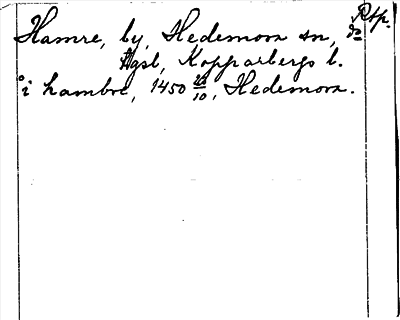 Rsp.
Hamre, by, Hedemora sn, do
Hgsl, Kopparbergs l.
i hambre, 1450 28/10, Hedemora.